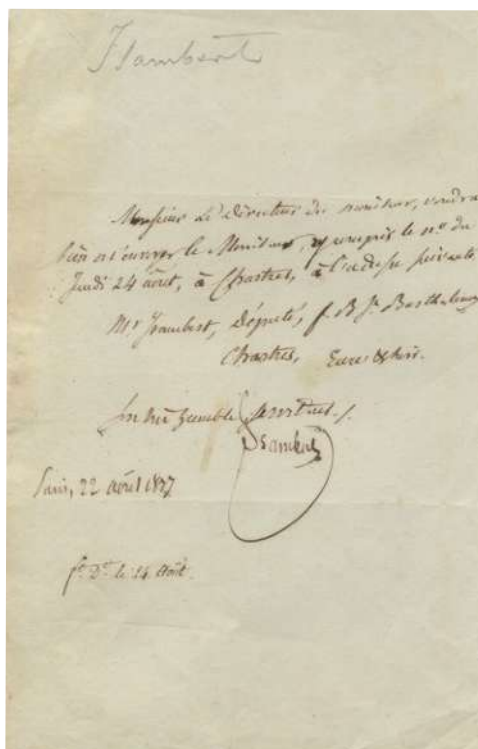 Isambert
Monsieur le Directeur du moniteur, voudra
bien m'envoyer le Moniteur, y compris le n.º du
Jeudi 24 août, à Chartres, à l'adresse suivante
Mr Isambert, Député, f. B. St. Barthelemy
Chartres, Eure & Loir.
Son très humble serviteur
Isambert
Paris, 22 août 1837
le 24 Août.